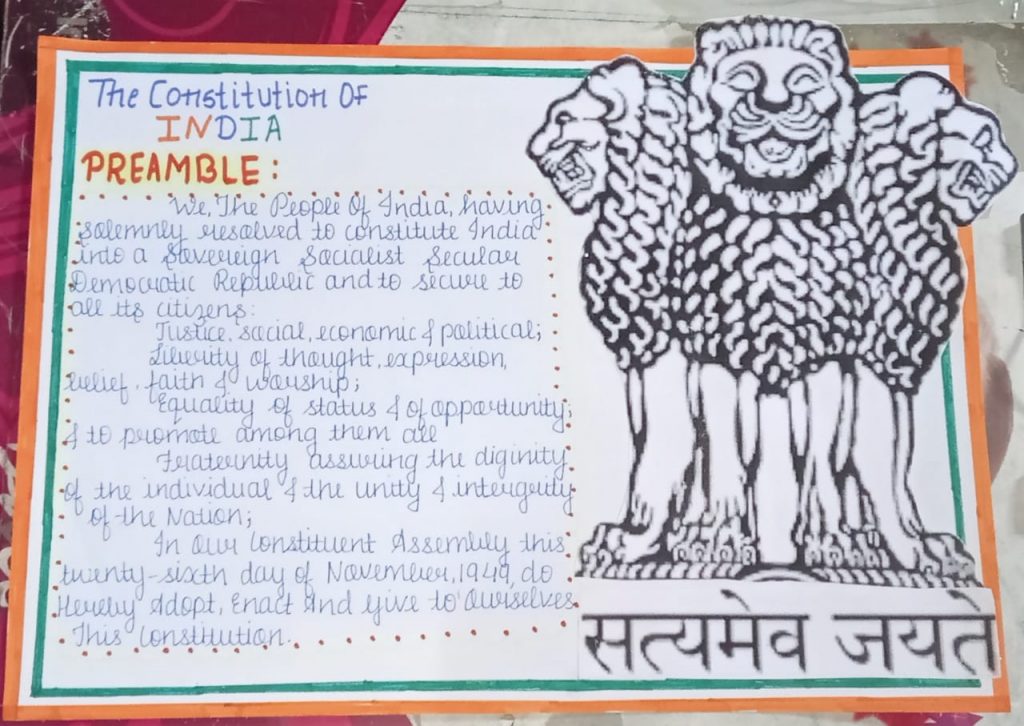 The Constitution Of
INDIA
PREAMBLE:
We, The People Of India, having
solemnly resolved to constitute India
into a Sovereign Socialist Secular
Democratic Republic and to secure to
all its citizens:
Justice, social, economic & political;
Liberity of thought, expression,
belief, faith & worship;
Equality of status & of opportunity;
& to promote among them all
Fraternity assuring the diginity
of the individual & the unity & intergrity
of the Nation;
In Our Constituent Assembly this
twenty-sixth day of November, 1949, do
Hereby Adopt, Enact And Give to Ourselves
This Constitution.
सत्यमेव जयते